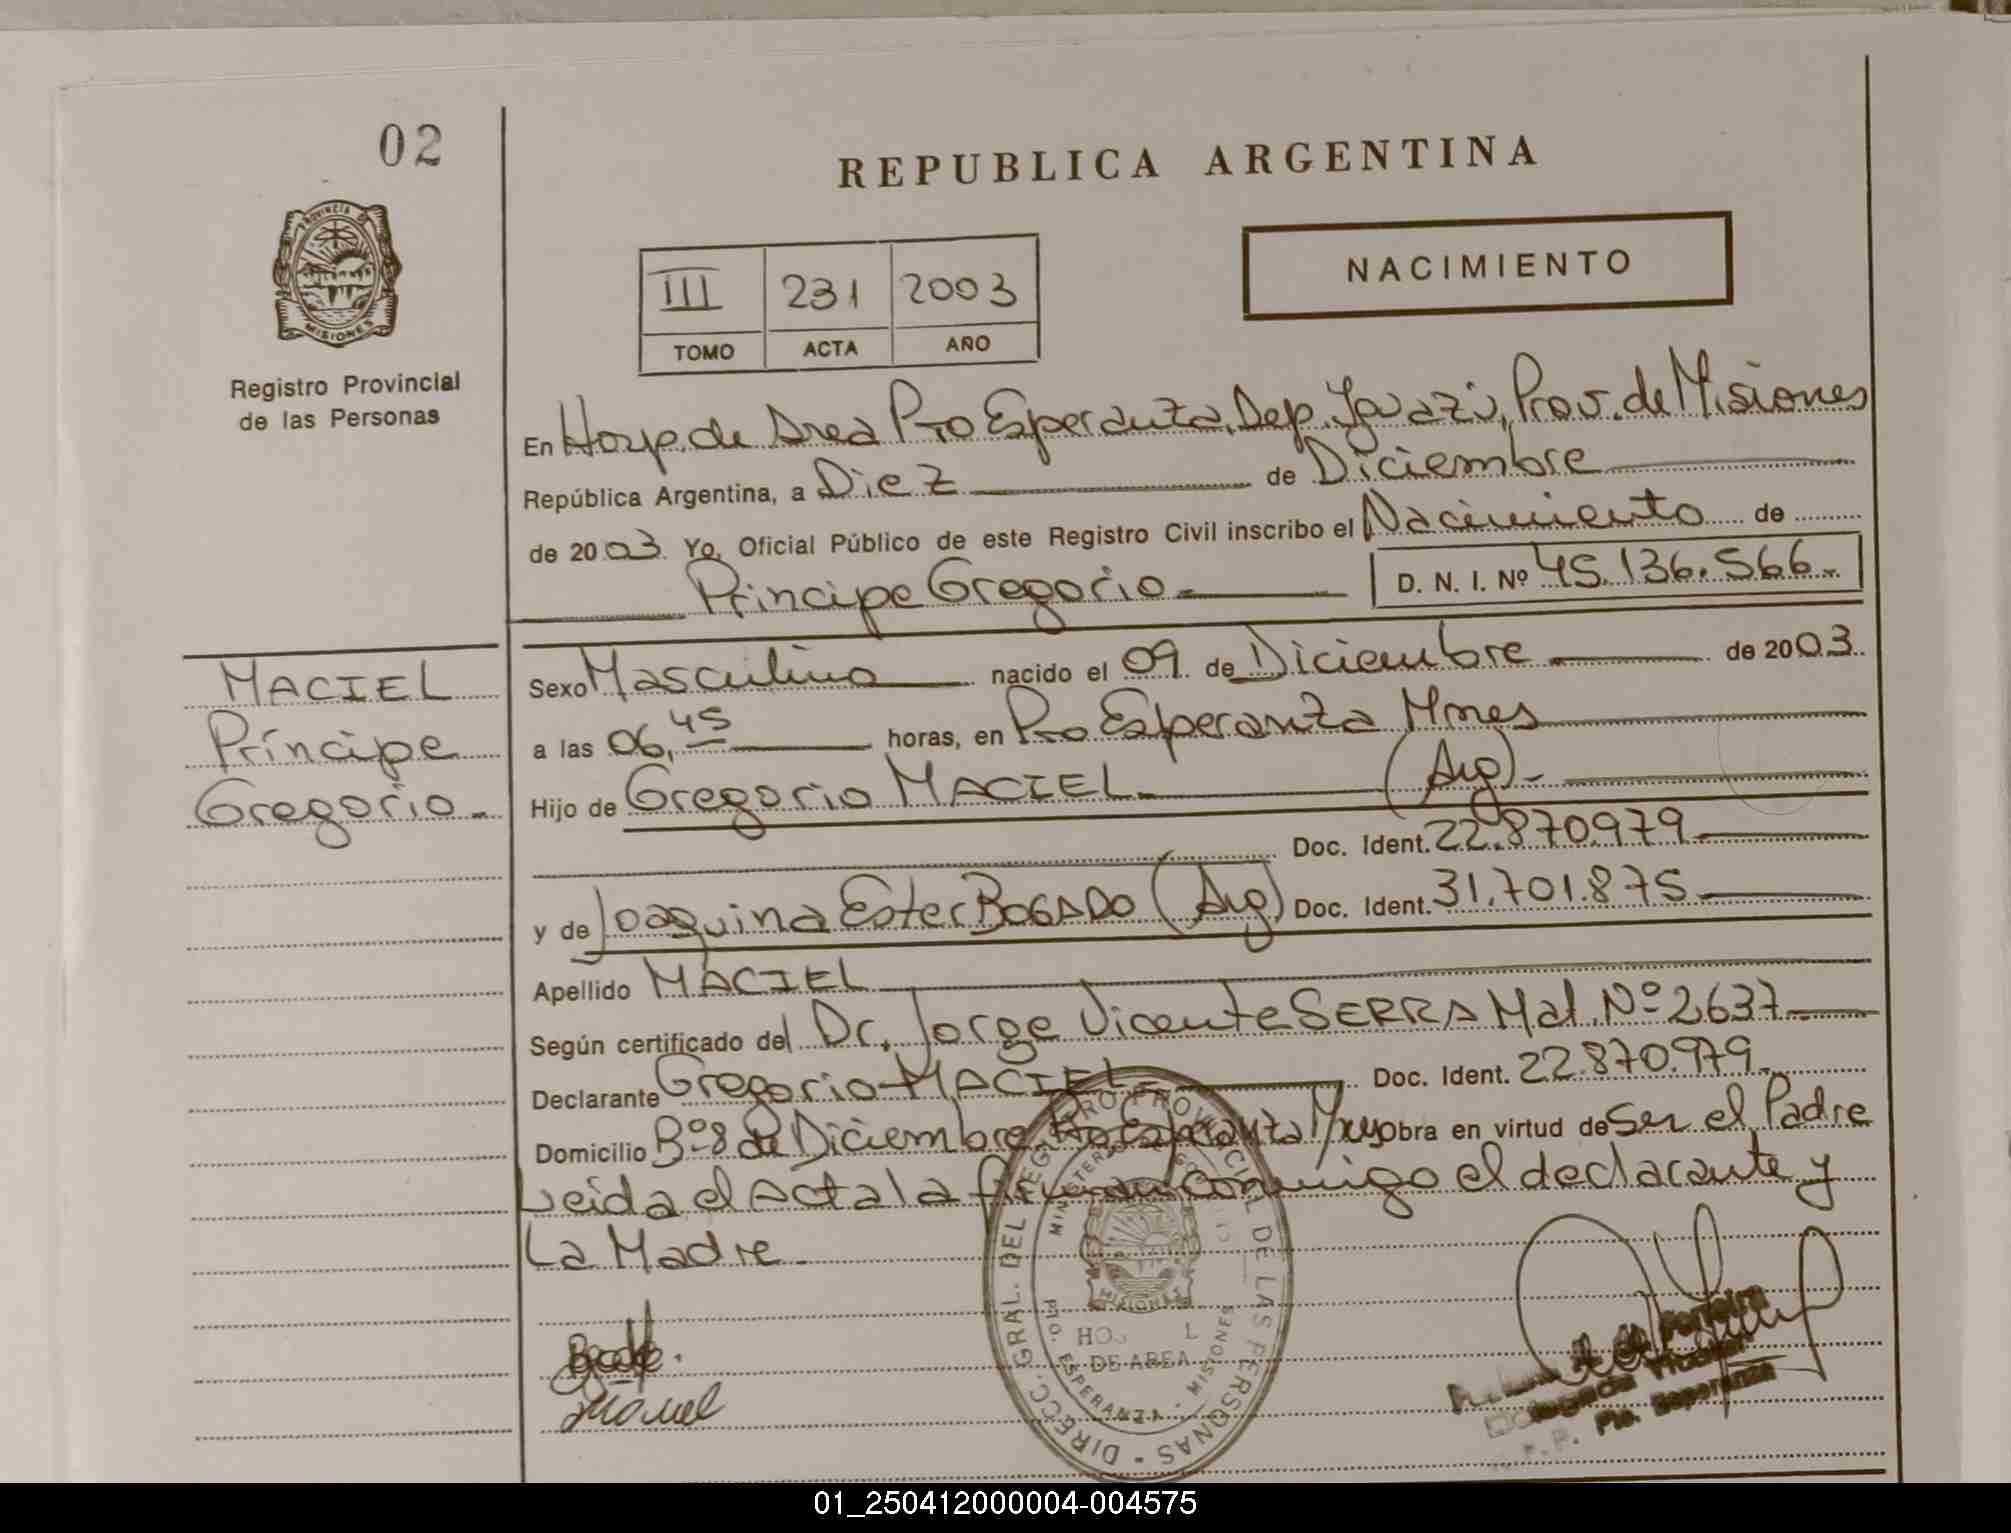 02
REPUBLICA ARGENTINA
PROVINCIA DE
MISIONES
Registro Provincial
de las Personas
III 231 2003
TOMO ACTA AÑO
NACIMIENTO
En Hosp. de Area Pto Esperanza, Dep. Iguazú, Prov. de Misiones
República Argentina, a Diez de Diciembre
de 2003 Yo, Oficial Público de este Registro Civil inscribo el Nacimiento de
Príncipe Gregorio.- D. N. I. Nº 45.136.566.-
MACIEL
Príncipe
Gregorio.-
Sexo Masculino nacido el 09 de Diciembre de 2003
a las 06,45 horas, en Pto Esperanza Mnes
Hijo de Gregorio MACIEL.- (Arg).-
Doc. Ident. 22.870.979
y de Joaquina Ester BOGADO (Arg) Doc. Ident. 31.701.875
Apellido MACIEL
Según certificado del Dr. Jorge Vicente SERRA Mat. Nº 2637
Declarante Gregorio MACIEL Doc. Ident. 22.870.979
Domicilio Bº 8 de Diciembre Pto Esperanza obra en virtud de ser el Padre
Leida el Acta la firman conmigo el declarante y
La Madre.-
DIRECC. GRAL. DEL REGISTRO PROVINCIAL DE LAS PERSONAS
MINISTERIO DE GO
HOS L
DE AREA
PTO. ESPERANZA - MISIONES
Maciel
Ferreira
Delegada Titular
R. P. P. Pto. Esperanza
01_250412000004-004575